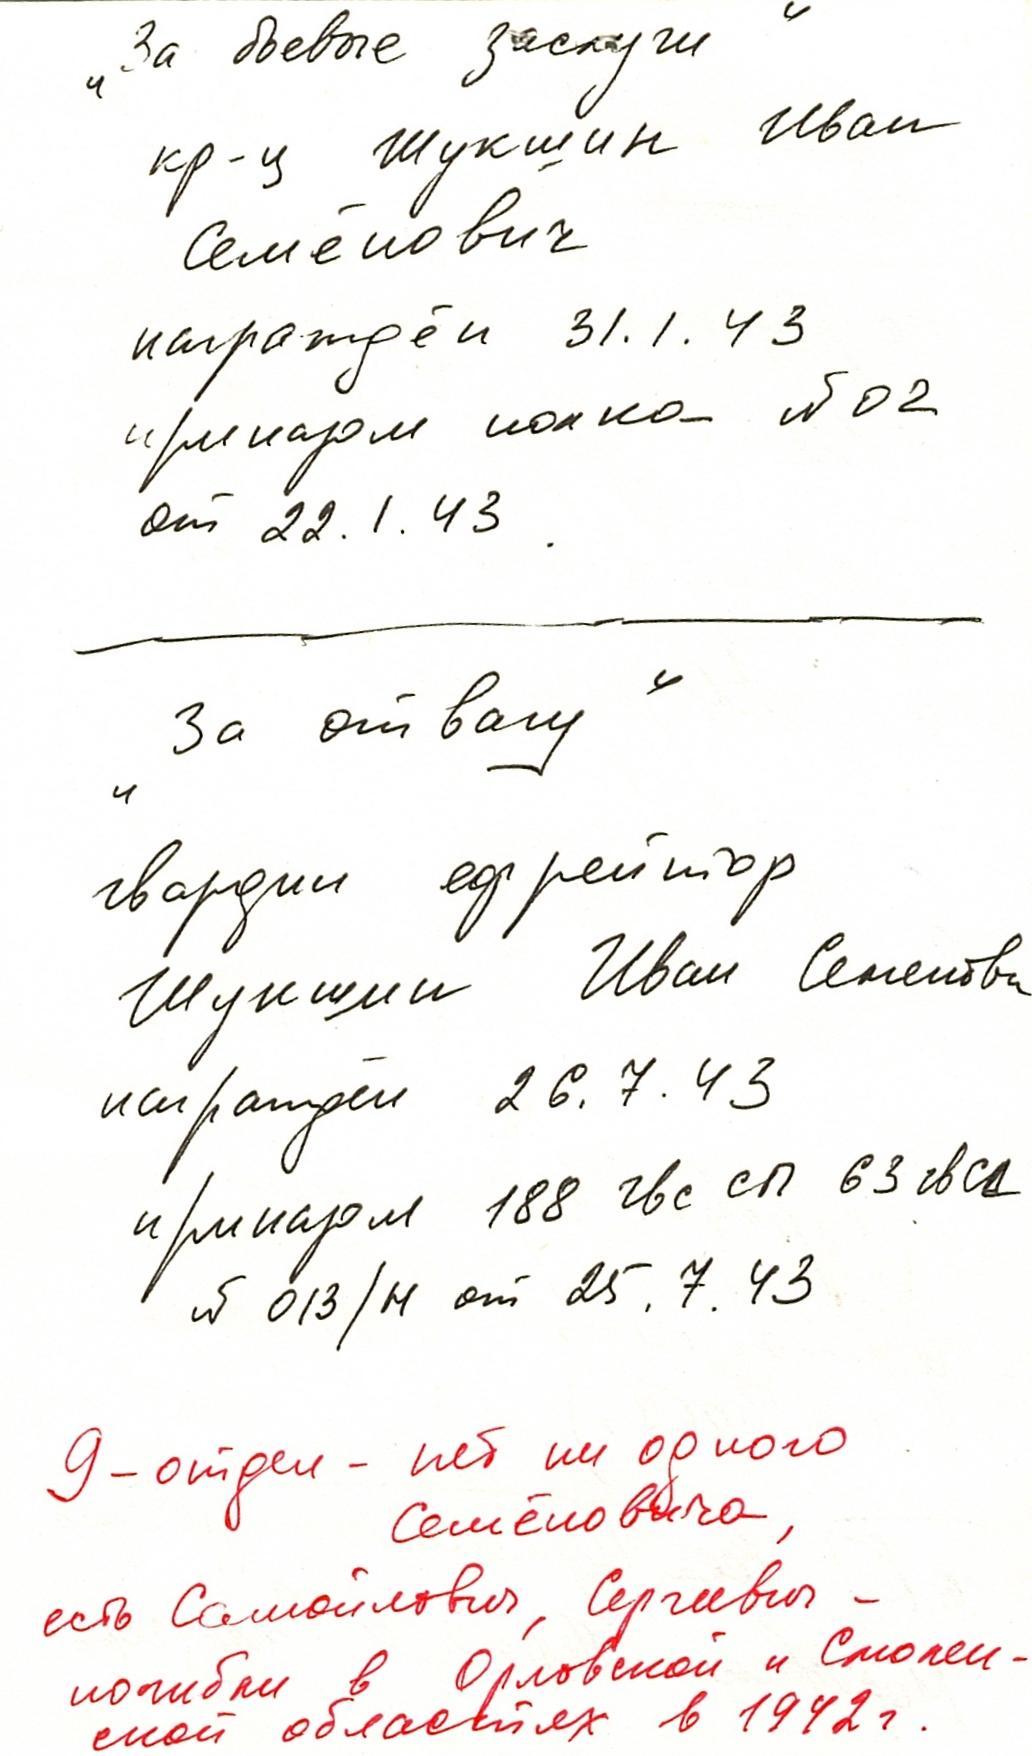 „За боевые заслуги“
кр-ц Шукшин Иван
Семёнович
награждён 31.1.43
приказом полка № 02
от 22.1.43.
„За отвагу“
гвардии ефрейтор
Шукшин Иван Семенови
награждён 26.7.43
приказом 188 гвс сп 63 гвсд
№ 013/н от 25.7.43
9-отдел - нет ни одного
Семёновича,
есть Самойлович, Сергеевич -
погибли в Орловской и Смолен-
ской областях в 1942 г.